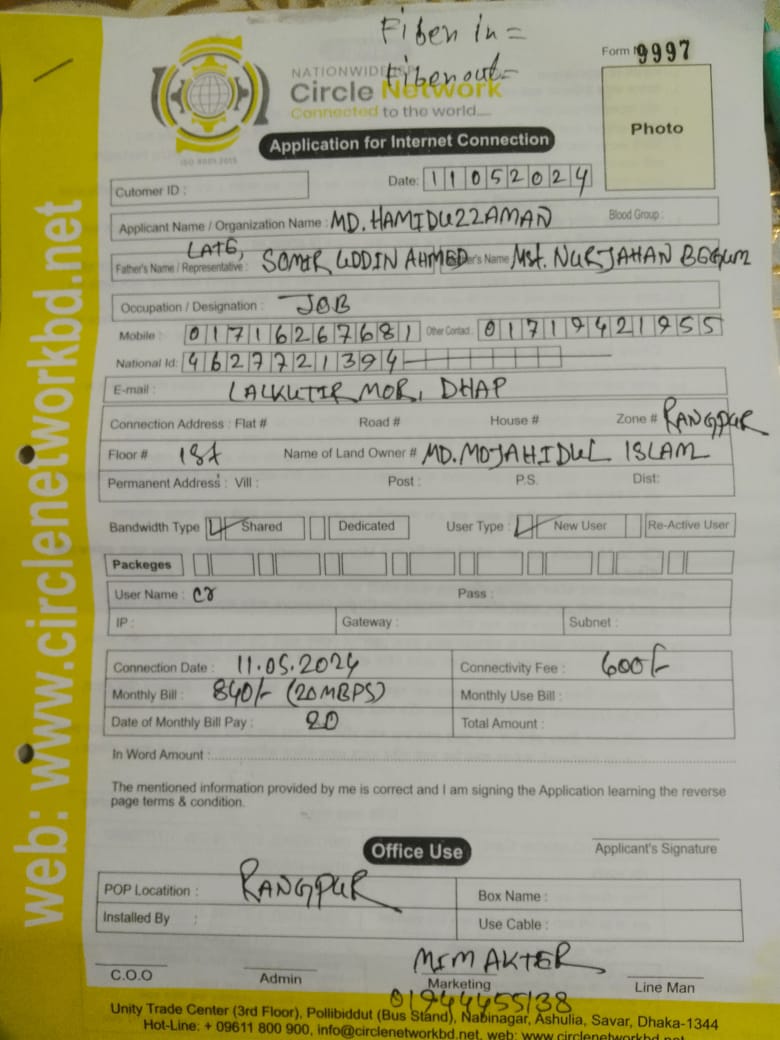 Fiber in =
Fiber out =
Form No 9997
NATIONWIDE ISP
Circle Network
Connected to the world....
ISO 9001:2015
Photo
Application for Internet Connection
Cutomer ID :
Date: 11052024
Applicant Name / Organization Name : MD. HAMIDUZZAMAN Blood Group :
LATE,
Father's Name / Representative : SOMIR UDDIN AHMED Mother's Name MST. NURJAHAN BEGUM
Occupation / Designation : JOB
Mobile : 01716267681 Other Contact : 01719421955
National Id: 4627721394
E-mail : LALKUTIR MOR, DHAP
Connection Address : Flat # Road # House # Zone # RANGPUR
Floor # 1st Name of Land Owner # MD. MOJAHIDUL ISLAM
Permanent Address : Vill : Post : P.S. Dist:
Bandwidth Type Shared Dedicated User Type : New User Re-Active User
Packeges
User Name : Pass :
IP : Gateway : Subnet :
Connection Date : 11.05.2024 Connectivity Fee : 600/-
Monthly Bill : 840/- (20MBPS) Monthly Use Bill :
Date of Monthly Bill Pay : 20 Total Amount :
In Word Amount :
The mentioned information provided by me is correct and I am signing the Application learning the reverse
page terms & condition.
Applicant's Signature
Office Use
POP Locatition : RANGPUR Box Name :
Installed By : Use Cable :
MIM AKTER
C.O.O Admin Marketing Line Man
01944455138
Unity Trade Center (3rd Floor), Pollibiddut (Bus Stand), Nabinagar, Ashulia, Savar, Dhaka-1344
Hot-Line: + 09611 800 900, info@circlenetworkbd.net, web: www.circlenetworkbd.net
web: www.circlenetworkbd.net